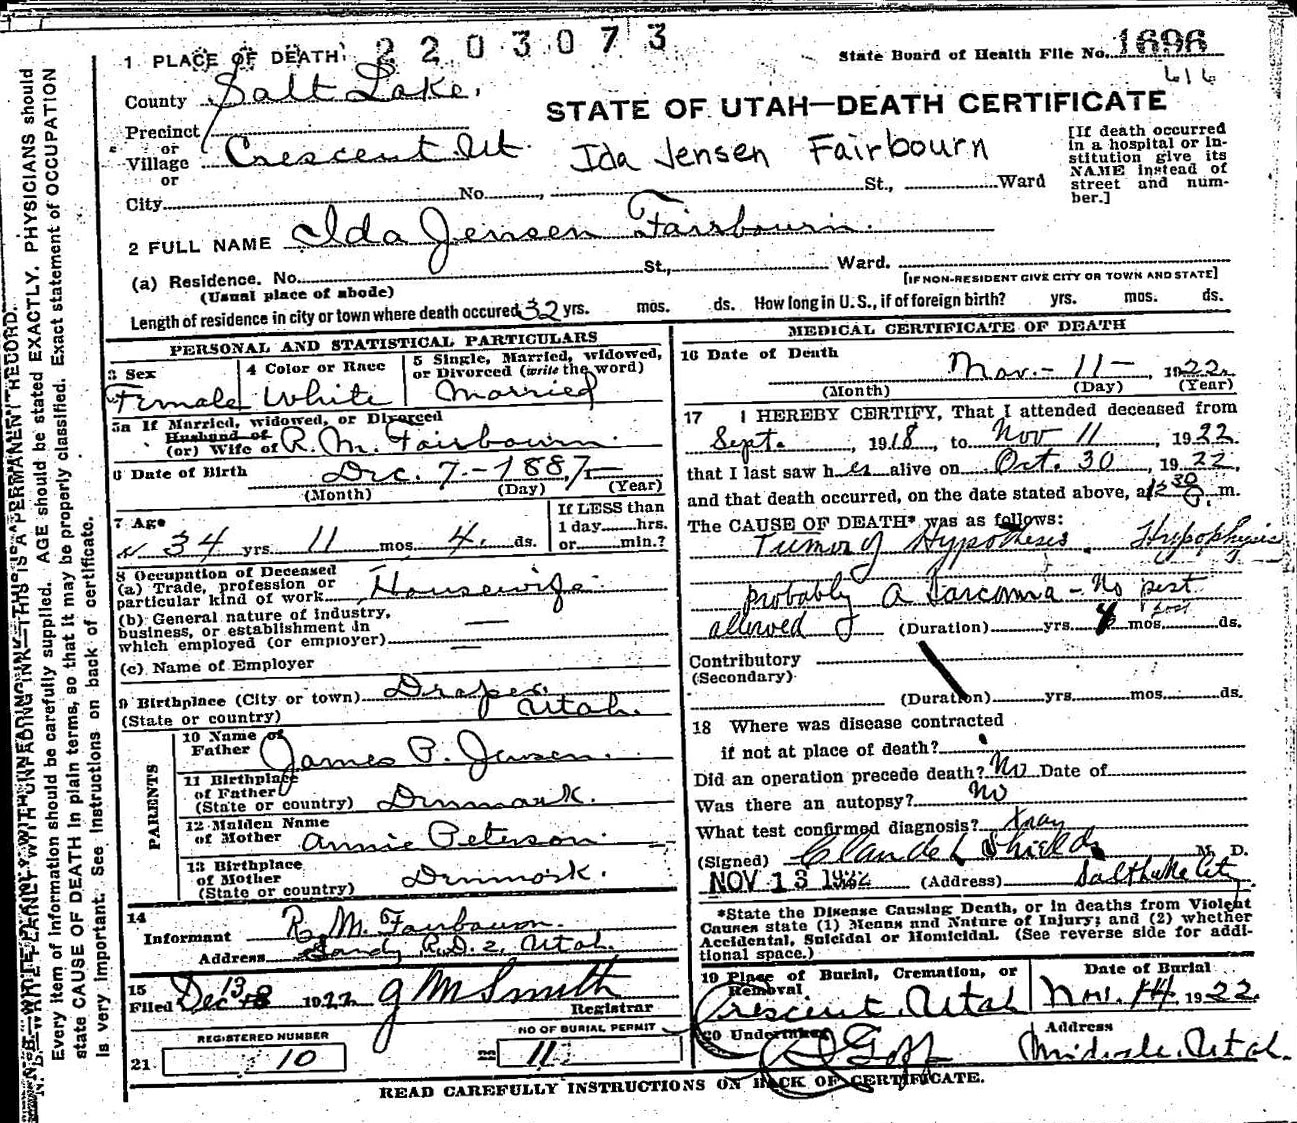 1 PLACE OF DEATH
2203073
State Board of Health File No. 1696
616
County Salt Lake.
STATE OF UTAH—DEATH CERTIFICATE
Precinct
or
Village Crescent Ut.
Ida Jensen Fairbourn
[If death occurred in a hospital or institution give its NAME instead of street and number.]
or
City No. St., Ward
2 FULL NAME Ida Jensen Fairbourn.
(a) Residence. No. St., Ward.
(Usual place of abode)
[IF NON-RESIDENT GIVE CITY OR TOWN AND STATE]
Length of residence in city or town where death occured 32 yrs. mos. ds. How long in U. S., if of foreign birth? yrs. mos. ds.
PERSONAL AND STATISTICAL PARTICULARS
3 Sex
Female
4 Color or Race
White
5 Single, Married, widowed,
or Divorced (write the word)
Married
5a If Married, widowed, or Divorced
Husband of
(or) Wife of R. M. Fairbourn.
6 Date of Birth Dec. 7 - 1887
(Month) (Day) (Year)
7 Age
34 yrs. 11 mos. 4 ds.
If LESS than
1 day hrs.
or min.?
8 Occupation of Deceased
(a) Trade, profession or
particular kind of work Housewife
(b) General nature of industry,
business, or establishment in
which employed (or employer)
(c) Name of Employer
9 Birthplace (City or town) Draper
(State or country) Utah.
PARENTS
10 Name of
Father James P. Jensen.
11 Birthplace
of Father
(State or country) Denmark.
12 Maiden Name
of Mother Annie Peterson
13 Birthplace
of Mother
(State or country) Denmark.
14
Informant R. M. Fairbourn
Address Sandy R.D. 2, Utah.
15
Filed Dec 13 1922 J M Smith
Registrar
REGISTERED NUMBER
21 10
NO OF BURIAL PERMIT
22 11
MEDICAL CERTIFICATE OF DEATH
16 Date of Death
Nov. - 11 - , 1922.
(Month) (Day) (Year)
17 I HEREBY CERTIFY, That I attended deceased from
Sept. , 1918 , to Nov 11 , 1922.
that I last saw her alive on Oct. 30 , 1922,
and that death occurred, on the date stated above, at 1230 m.
The CAUSE OF DEATH* was as follows:
Tumor of Hypothesis. Hypophysis
probably a sarcoma - No post
post
allowed (Duration) yrs. 4 mos. ds.
Contributory
(Secondary)
(Duration) yrs. mos. ds.
18 Where was disease contracted
if not at place of death?
Did an operation precede death? No Date of
Was there an autopsy? No
What test confirmed diagnosis? Xray
(Signed) Claude L Shields M. D.
NOV 13 1922 (Address) Salt Lake City
*State the Disease Causing Death, or in deaths from Violent
Causes state (1) Means and Nature of Injury; and (2) whether
Accidental, Suicidal or Homicidal. (See reverse side for addi-
tional space.)
19 Place of Burial, Cremation, or
Removal
Crescent, Utah
Date of Burial
Nov. 14, 1922.
20 Undertaker
Goff
Address
Midvale, Utah.
READ CAREFULLY INSTRUCTIONS ON BACK OF CERTIFICATE.
N. B.—WRITE PLAINLY WITH UNFADING INK—THIS IS A PERMANENT RECORD.
Every item of information should be carefully supplied. AGE should be stated EXACTLY. PHYSICIANS should
state CAUSE OF DEATH in plain terms, so that it may be properly classified. Exact statement of OCCUPATION
is very important. See instructions on back of certificate.